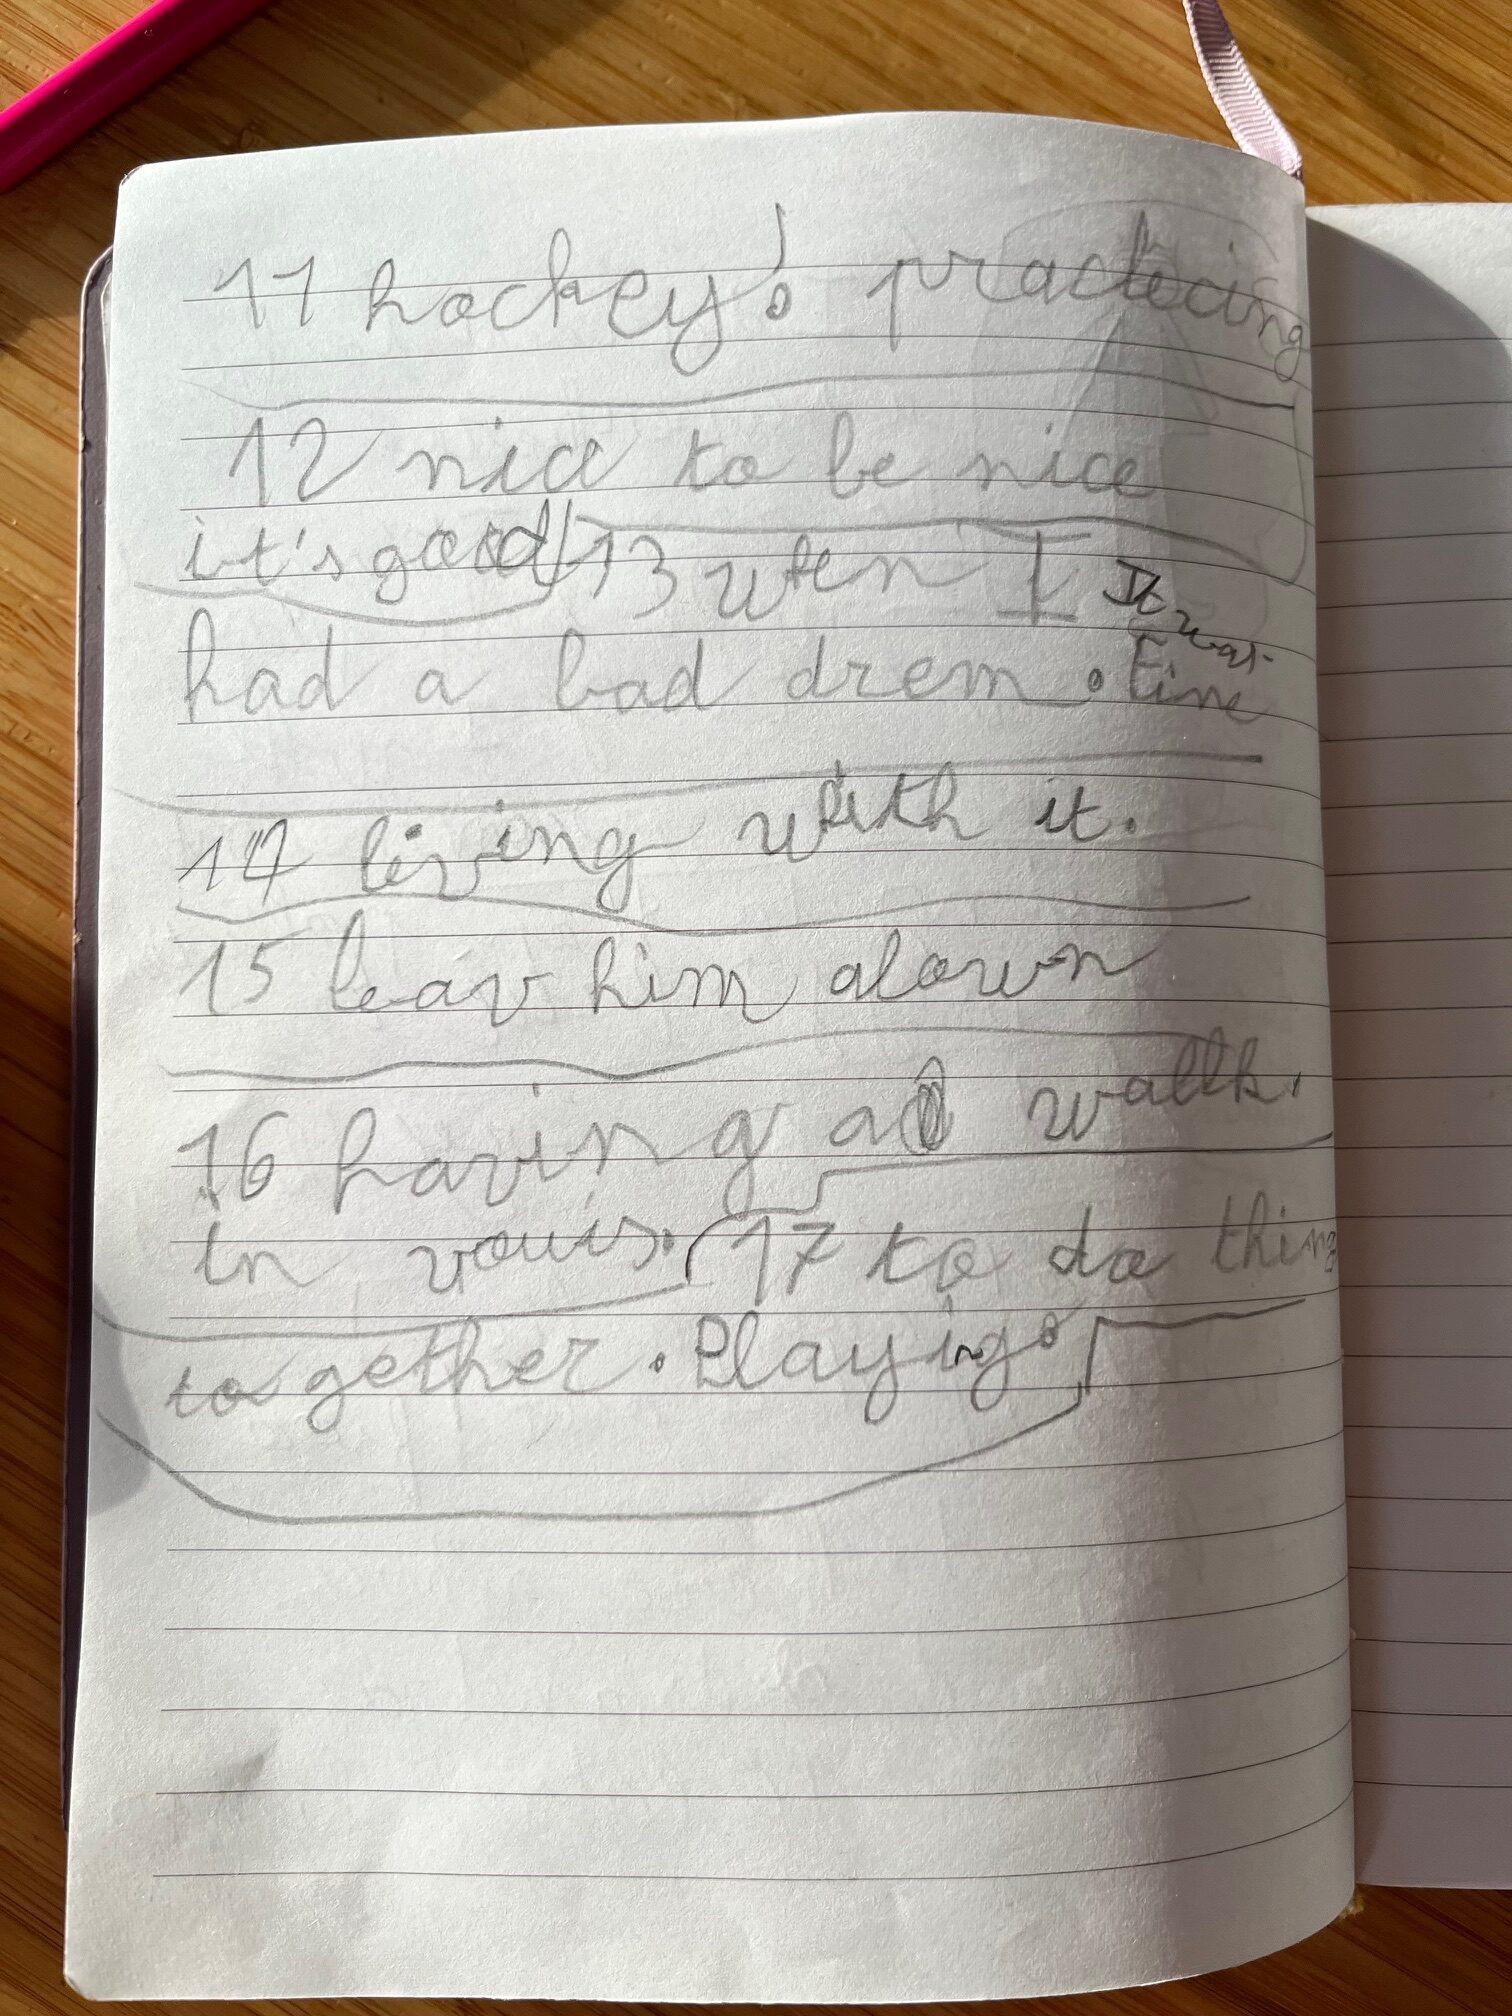 11 hockey! practecing
12 nice to be nice
it's good 13 when I It was
had a bad drem. Fine
14 living with it.
15 leav him alown
16 having a wallk.
in vouis. 17 to do thing
to gether. Playing.